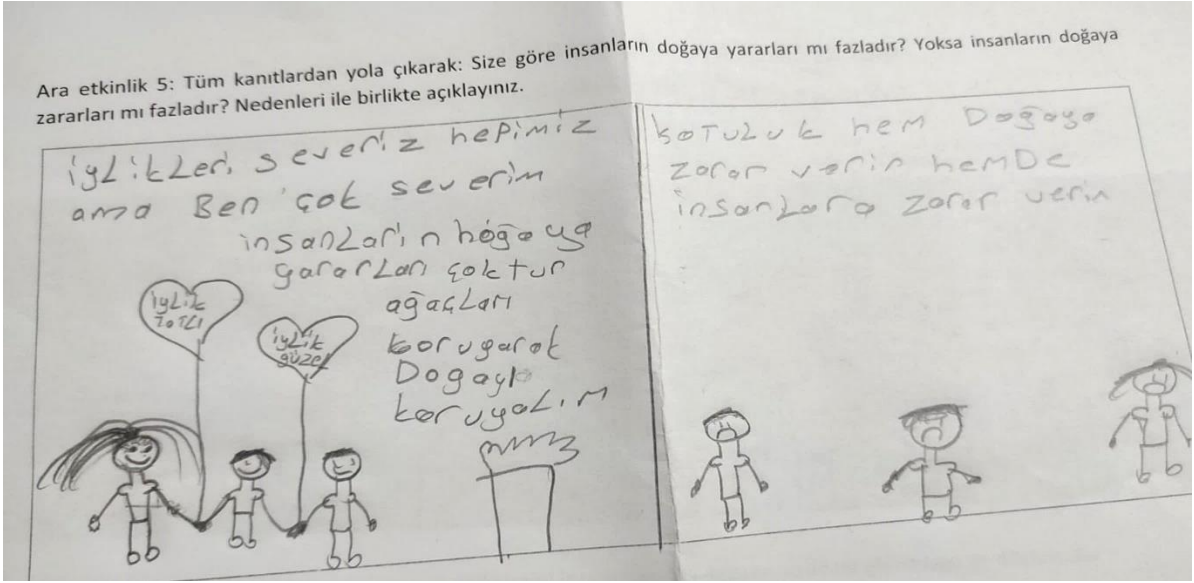 Ara etkinlik 5: Tüm kanıtlardan yola çıkarak: Size göre insanların doğaya yararları mı fazladır? Yoksa insanların doğaya
zararları mı fazladır? Nedenleri ile birlikte açıklayınız.
iyLikLeri severiz hepimiz
ama Ben çok severim
insanLarın hoğaya
yararLarı çoktur
ağaçLarı
koruyarak
Dogayı
koruyaLım
iyLik
TOTLI
iyLik
güzel
KOTULUK hem Doğaya
zarar verir hemDe
insanLara zarar verir